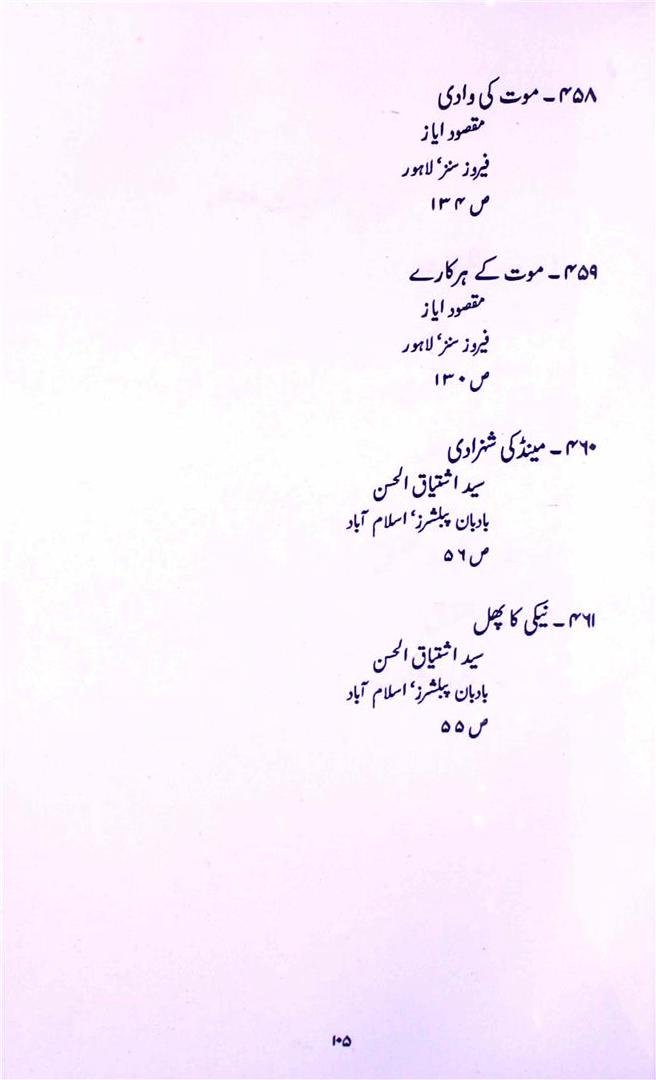 ۴۵۸ ۔ موت کی وادی
مقصود ایاز
فیروز سنز، لاہور
ص ۱۳۴
۴۵۹ ۔ موت کے ہرکارے
مقصود ایاز
فیروز سنز، لاہور
ص ۱۳۰
۴۶۰ ۔ مینڈکی شہزادی
سید اشتیاق الحسن
بادبان پبلشرز، اسلام آباد
ص ۵۶
۴۶۱ ۔ نیکی کا پھل
سید اشتیاق الحسن
بادبان پبلشرز، اسلام آباد
ص ۵۵
۱۰۵